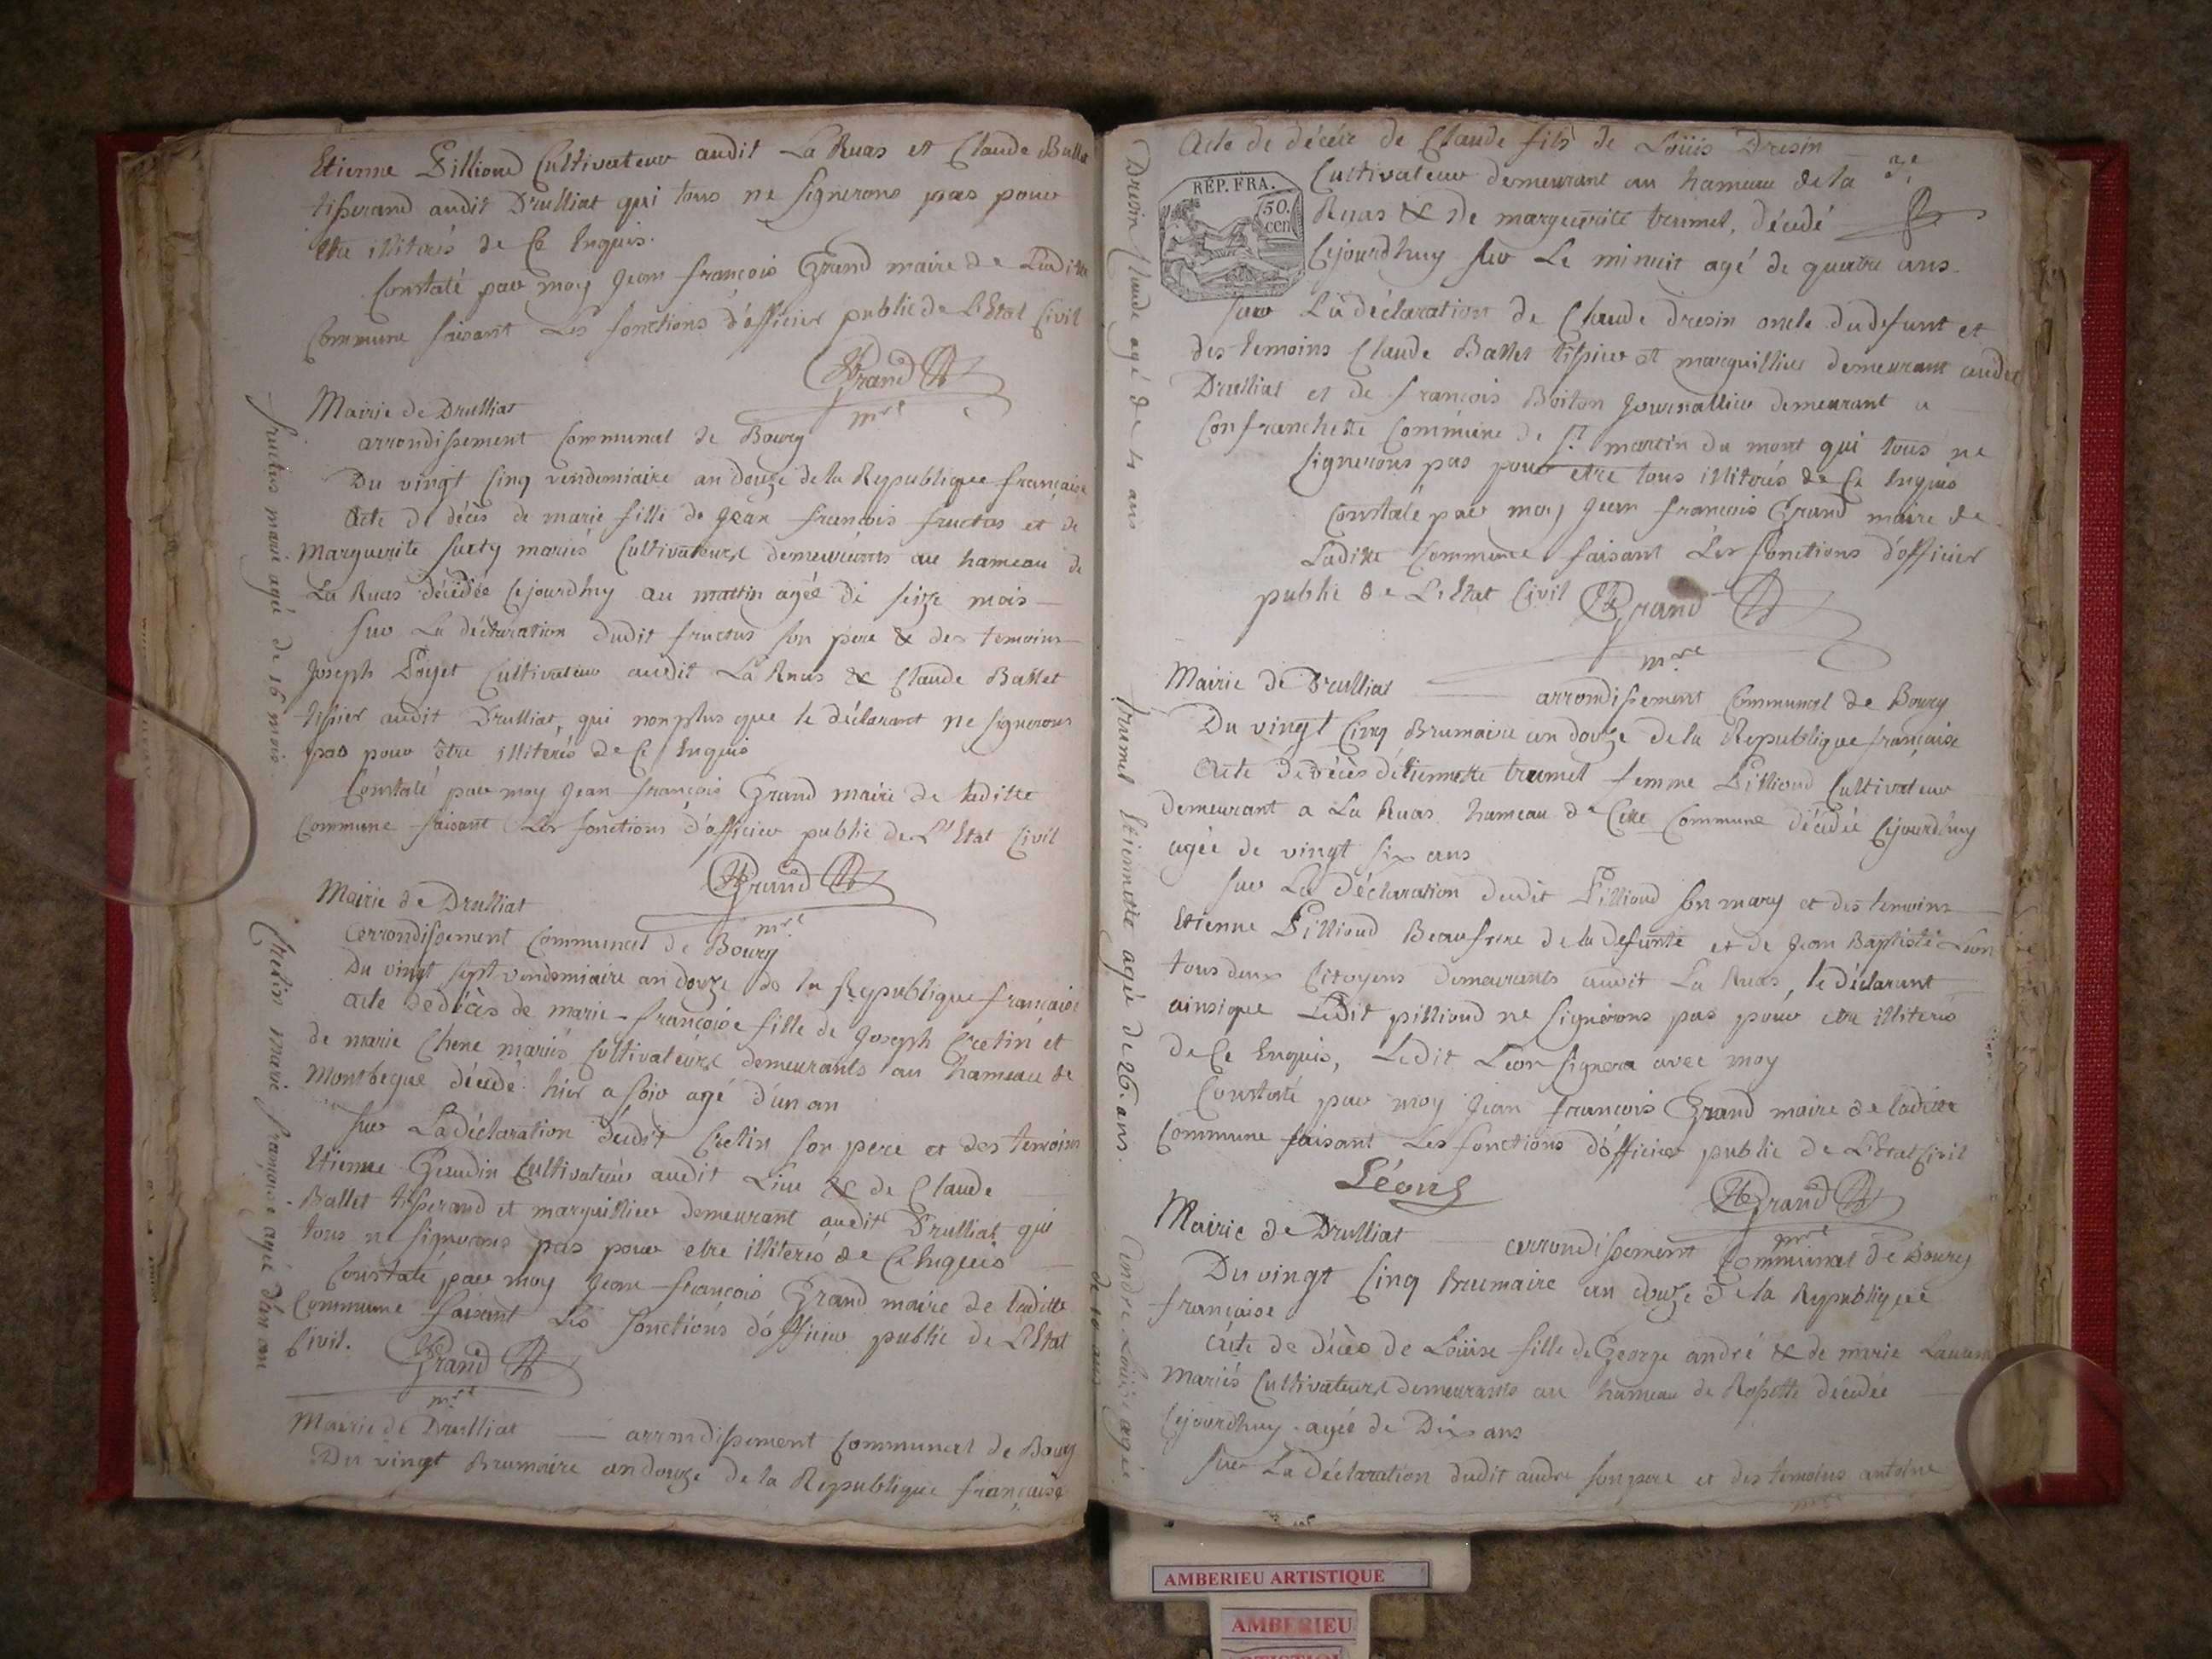 Etienne Pilliond Cultivateur audit La Ruas et Claude Ballet
tisserand audit Drulliat qui tous ne signerons pas pour
etre illiterés de Ce Enquis.
Constaté par moy Jean françois Grand maire de Laditte
Commune faisant Les fonctions d'officier public de L'Etat Civil
Grand
mre
Mairie de Drulliat
arrondissement Communal de Bourg
Du vingt Cinq vendemiaire an douze de la Republique française
Acte de décès de marie fille de Jean francois fructus et de
Marguerite Suety mariés Cultivateurs demeurants au hameau de
La Ruas décédée Cejourdhuy au mattin agée de seize mois
Sur La déclaration dudit fructus son pere & des temoins
Joseph Poyet Cultivateur audit La Ruas & Claude Ballet
tissier audit Drulliat, qui non plus que le déclarant ne signerons
pas pour etre illiterés de Ce Enquis
Constaté par moy Jean françois Grand maire de laditte
Commune faisant Les fonctions d'officier public de L'Etat Civil
Grand
mre
fructus marie agée de 16 mois.
Mairie de Drulliat
arrondissement Communal de Bourg
Du vingt sept vendemiaire an douze de la Republique française
acte de décès de marie-françoise fille de Joseph Cretin et
de marie Chene mariés Cultivateurs demeurants au hameau de
Montbegue décédé hier a soir agé d'un an
Sur La déclaration dudit Cretin son pere et des temoins
Etienne Gaudin Cultivateur audit Lieu & de Claude
Ballet tisserand et marguillier demeurant audit Drulliat qui
tous ne signerons pas pour etre illiterés de Ce Enquis
Constaté par moy Jean françois Grand maire de laditte
Commune faisant Les fonctions d'officier public de L'Etat
Civil.
Grand
mre
Cretin marie françoise agée d'un an
Mairie de Drulliat — arrondissement Communal de Bourg
Du vingt Brumaire an douze de la Republique française
Acte de décéz de Claude fils de Loüis Dresin
Cultivateur demeurant au hameau de la
Ruas & de marguerite trumel, décédé
Cejourdhuy sur Le minuit agé de quatre ans.
RÉP. FRA.
50.
cen
Sur La déclaration de Claude dresin oncle du defunt et
des temoins Claude Ballet tissier et marguillier demeurant audit
Drulliat et de francois Boiton Journallier demeurant a
Confranchette Commune de St martin du mont qui tous ne
signerons pas pour etre tous illiterés de Ce Enquis
Constaté par moy Jean francois Grand maire de
Laditte Commune faisant Les fonctions d'officier
public de L'Etat Civil
Grand
mre
Dresin Claude agé de 4 ans
Mairie de Drulliat — arrondissement Communal de Bourg
Du vingt Cinq Brumaire an douze de la Republique française
Acte de décès d'étiennette trumel femme Pilliond Cultivateur
demeurant a La Ruas hameau de Cette Commune décédée Cejourdhuy
agée de vingt six ans
Sur La déclaration dudit Pilliond son mary et des temoins
Etienne Pilliond Beaufrere de la defunte et de Jean Baptiste Léon
tous deux Citoyens demeurants audit La Ruas, le déclarant
ainsique Ledit pilliond ne signerons pas pour etre illiterés
de Ce Enquis, Ledit Léon signera avec moy
Constaté par moy Jean francois Grand maire de laditte
Commune faisant Les fonctions d'officier public de L'Etat Civil
Léon
Grand
mre
trumel Etiennette agée de 26. ans.
Mairie de Drulliat — arrondissement Communal de Bourg
Du vingt Cinq Brumaire an douze de la Republique
française
Acte de décès de Loüise fille de George andré & de marie
mariés Cultivateurs demeurants au hameau de Rossette décédée
Cejourdhuy agée de Dix ans
Sur La déclaration dudit andré son pere et des temoins antoine
andré Louise agée
de 10 ans
AMBERIEU ARTISTIQUE
AMBERIEU